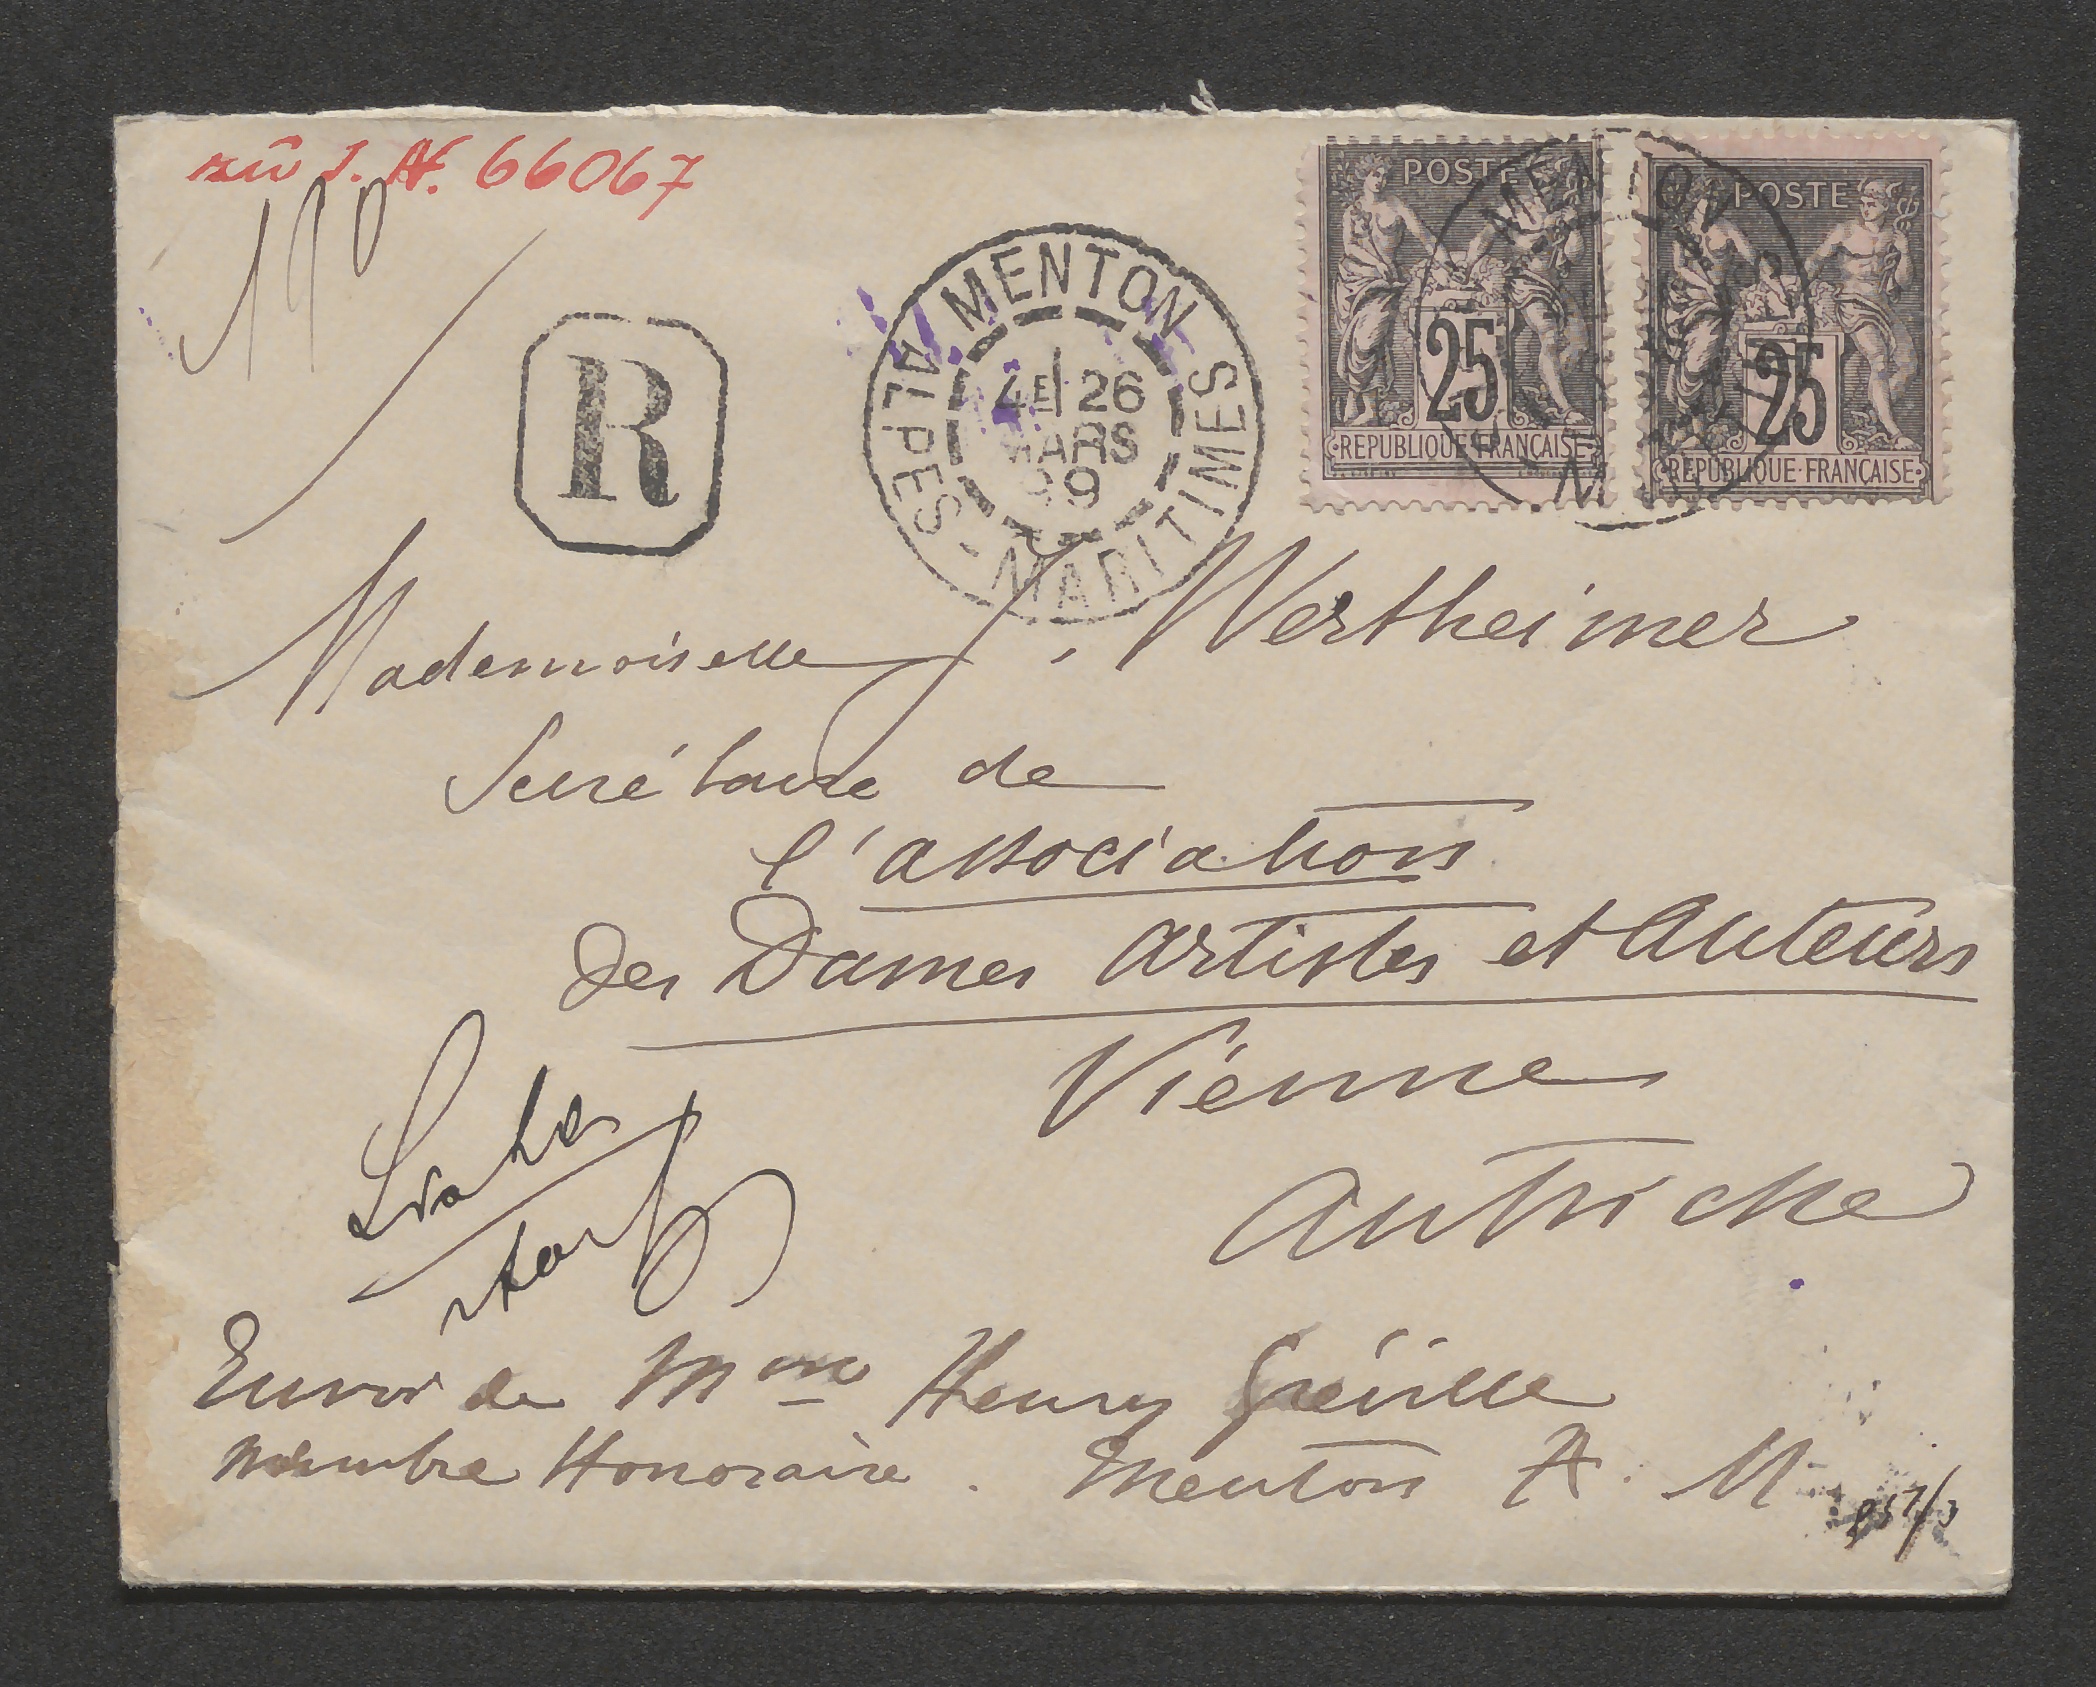 zu I. N. 66067
190
R
MENTON
4E 26
MARS
99
ALPES-MARITIMES
POSTE
25
REPUBLIQUE FRANÇAISE
POSTE
25
REPUBLIQUE FRANÇAISE
MENTON
Mademoiselle J. Wertheimer
Secrétaire de
l'association
des Dames artistes et auteurs
Vienne
Autriche
Envoi de Mme Henry Gréville
Membre Honoraire. Menton A. M